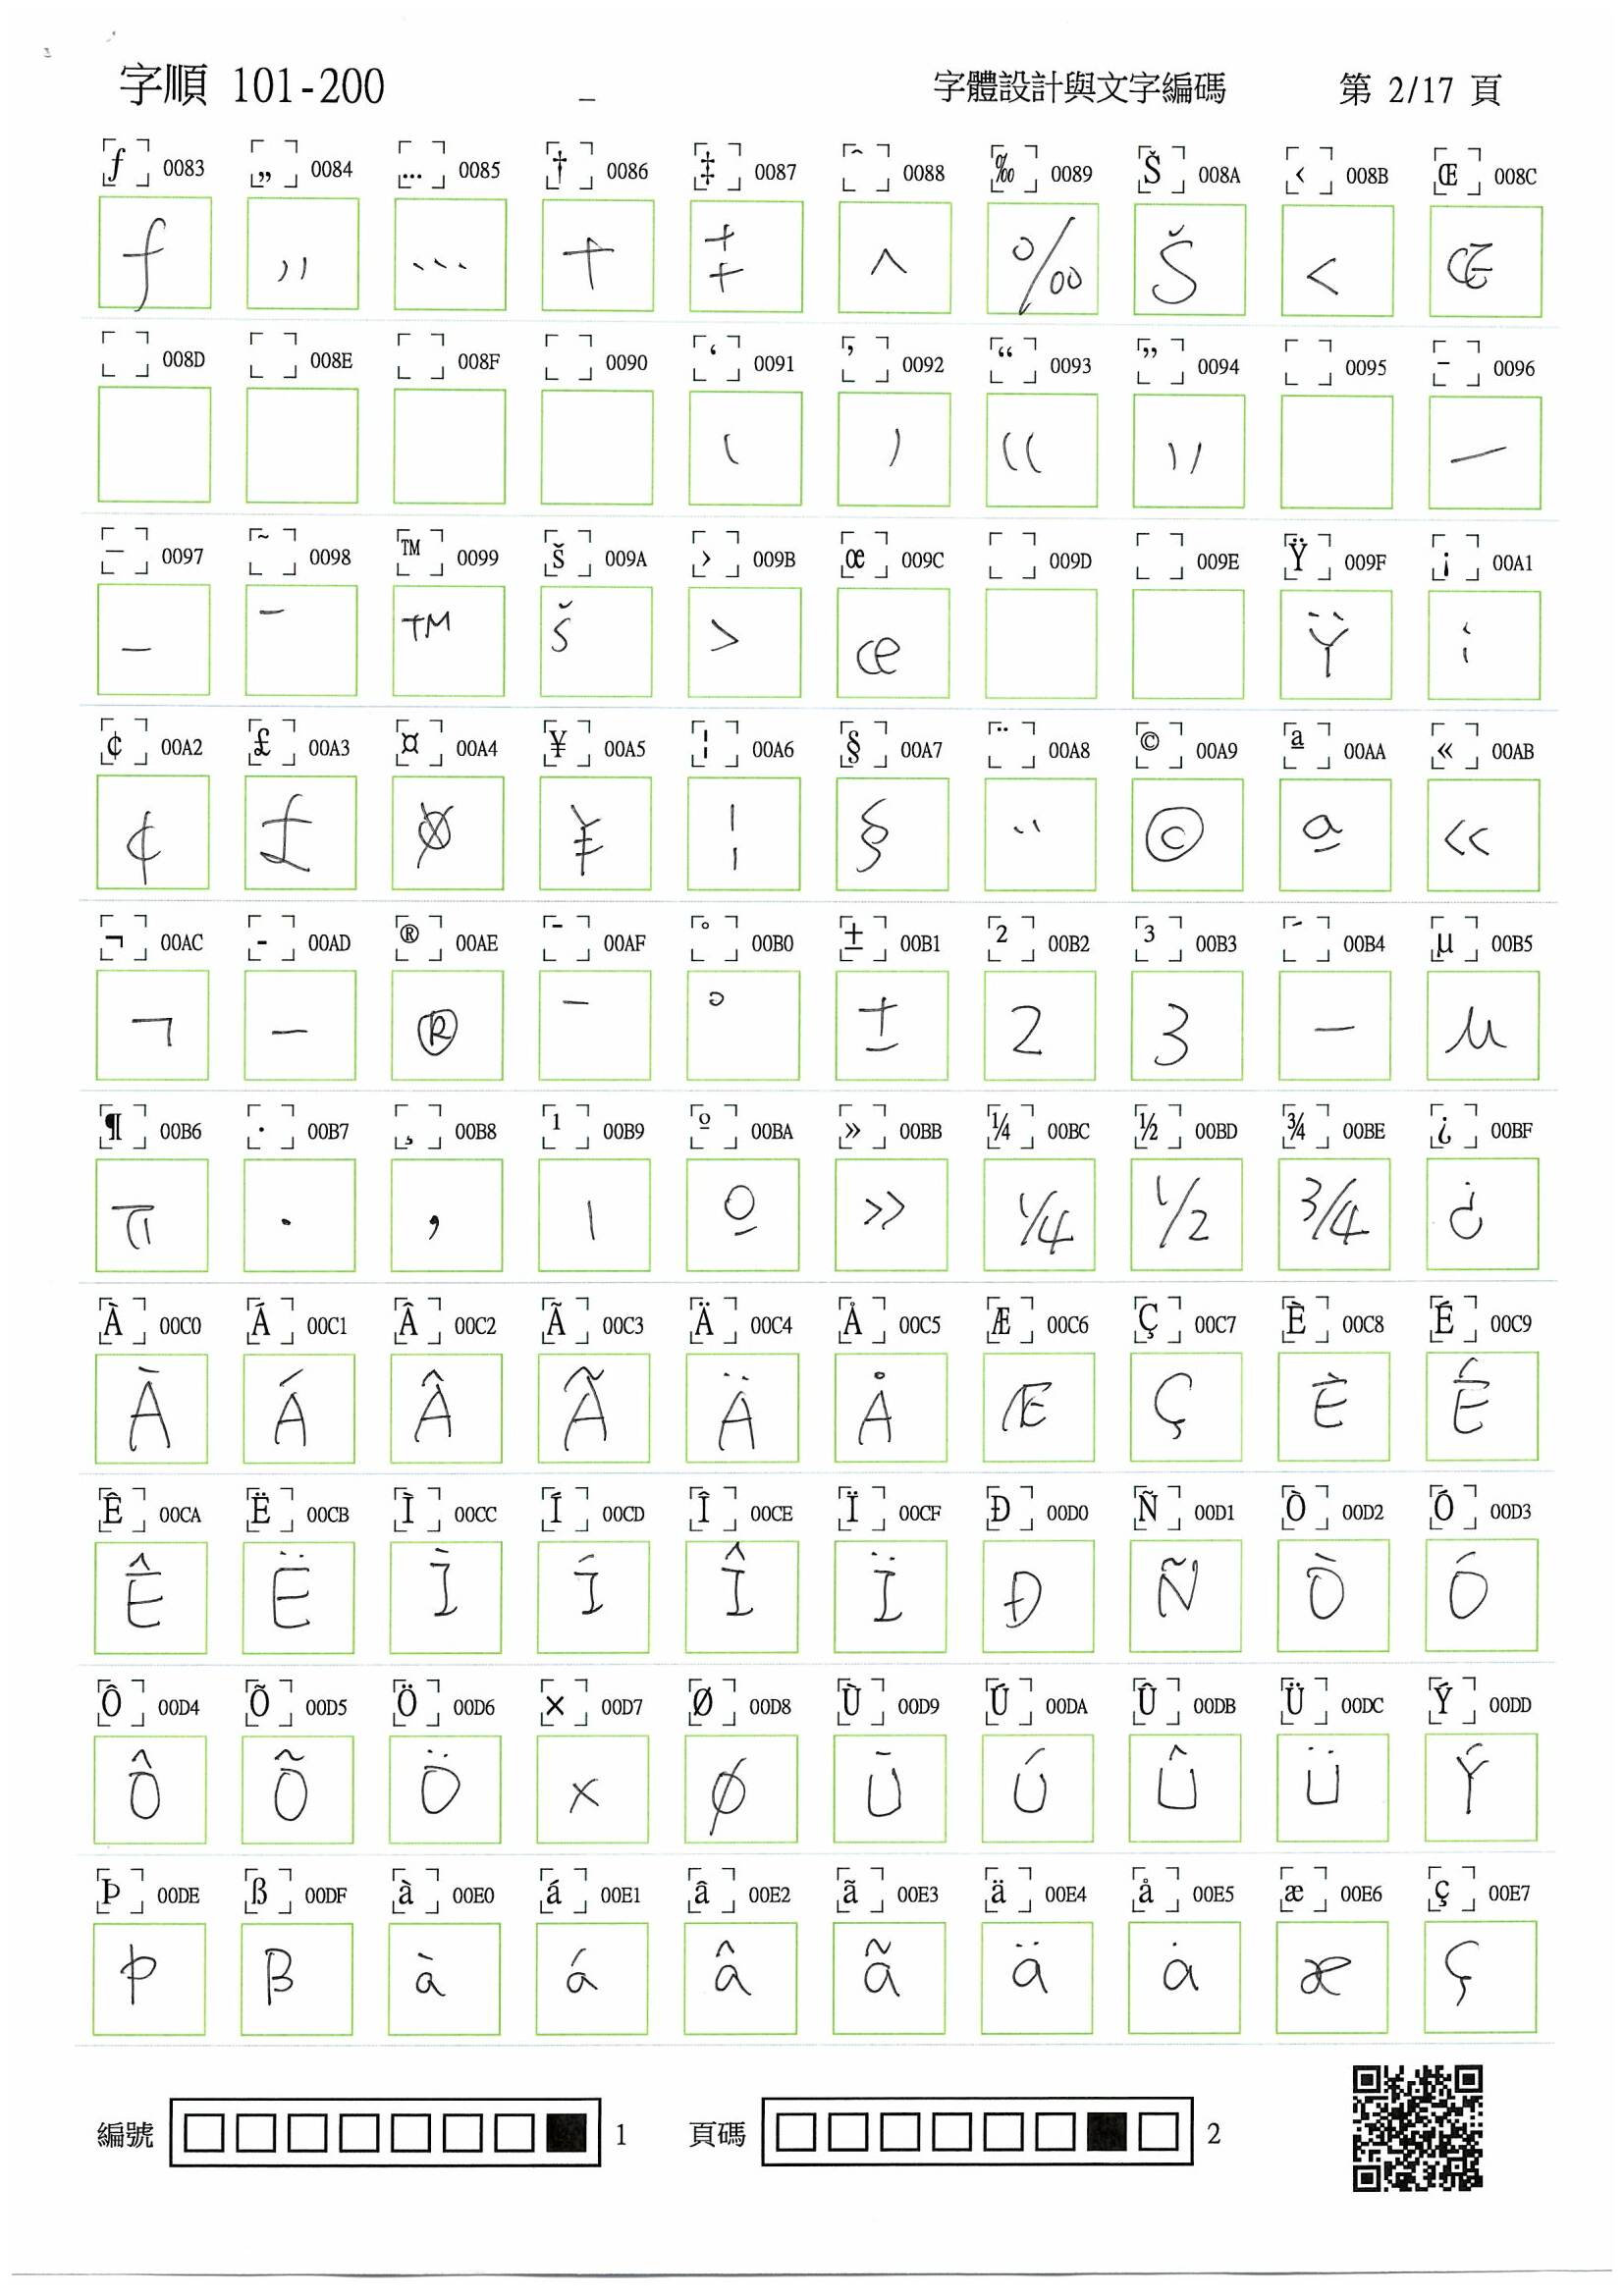 字順 101-200 字體設計與文字編碼 第 2/17 頁
ƒ 0083 „ 0084 … 0085 † 0086 ‡ 0087 ˆ 0088 ‰ 0089 Š 008A ‹ 008B Œ 008C
ƒ „ … † ‡ ^ ‰ Š < Œ
008D 008E 008F 0090 ‘ 0091 ’ 0092 “ 0093 ” 0094 0095 – 0096
‘ ’ “ ” –
— 0097 ˜ 0098 ™ 0099 š 009A › 009B œ 009C 009D 009E Ÿ 009F ¡ 00A1
— ¯ ™ š > œ Ÿ ¡
¢ 00A2 £ 00A3 ¤ 00A4 ¥ 00A5 ¦ 00A6 § 00A7 ¨ 00A8 © 00A9 ª 00AA « 00AB
¢ £ ¤ ¥ ¦ § ¨ © ª «
¬ 00AC - 00AD ® 00AE ¯ 00AF ° 00B0 ± 00B1 ² 00B2 ³ 00B3 ´ 00B4 µ 00B5
¬ - ® ¯ ° ± 2 3 – µ
¶ 00B6 · 00B7 ¸ 00B8 ¹ 00B9 º 00BA » 00BB ¼ 00BC ½ 00BD ¾ 00BE ¿ 00BF
¶ · , 1 º » ¼ ½ ¾ ¿
À 00C0 Á 00C1 Â 00C2 Ã 00C3 Ä 00C4 Å 00C5 Æ 00C6 Ç 00C7 È 00C8 É 00C9
À Á Â Ã Ä Å Æ Ç È É
Ê 00CA Ë 00CB Ì 00CC Í 00CD Î 00CE Ï 00CF Ð 00D0 Ñ 00D1 Ò 00D2 Ó 00D3
Ê Ë Ì Í Î Ï Ð Ñ Ò Ó
Ô 00D4 Õ 00D5 Ö 00D6 × 00D7 Ø 00D8 Ù 00D9 Ú 00DA Û 00DB Ü 00DC Ý 00DD
Ô Õ Ö × Ø Ù Ú Û Ü Ý
Þ 00DE ß 00DF à 00E0 á 00E1 â 00E2 ã 00E3 ä 00E4 å 00E5 æ 00E6 ç 00E7
Þ ß à á â ã ä å æ ç
編號 1 頁碼 2